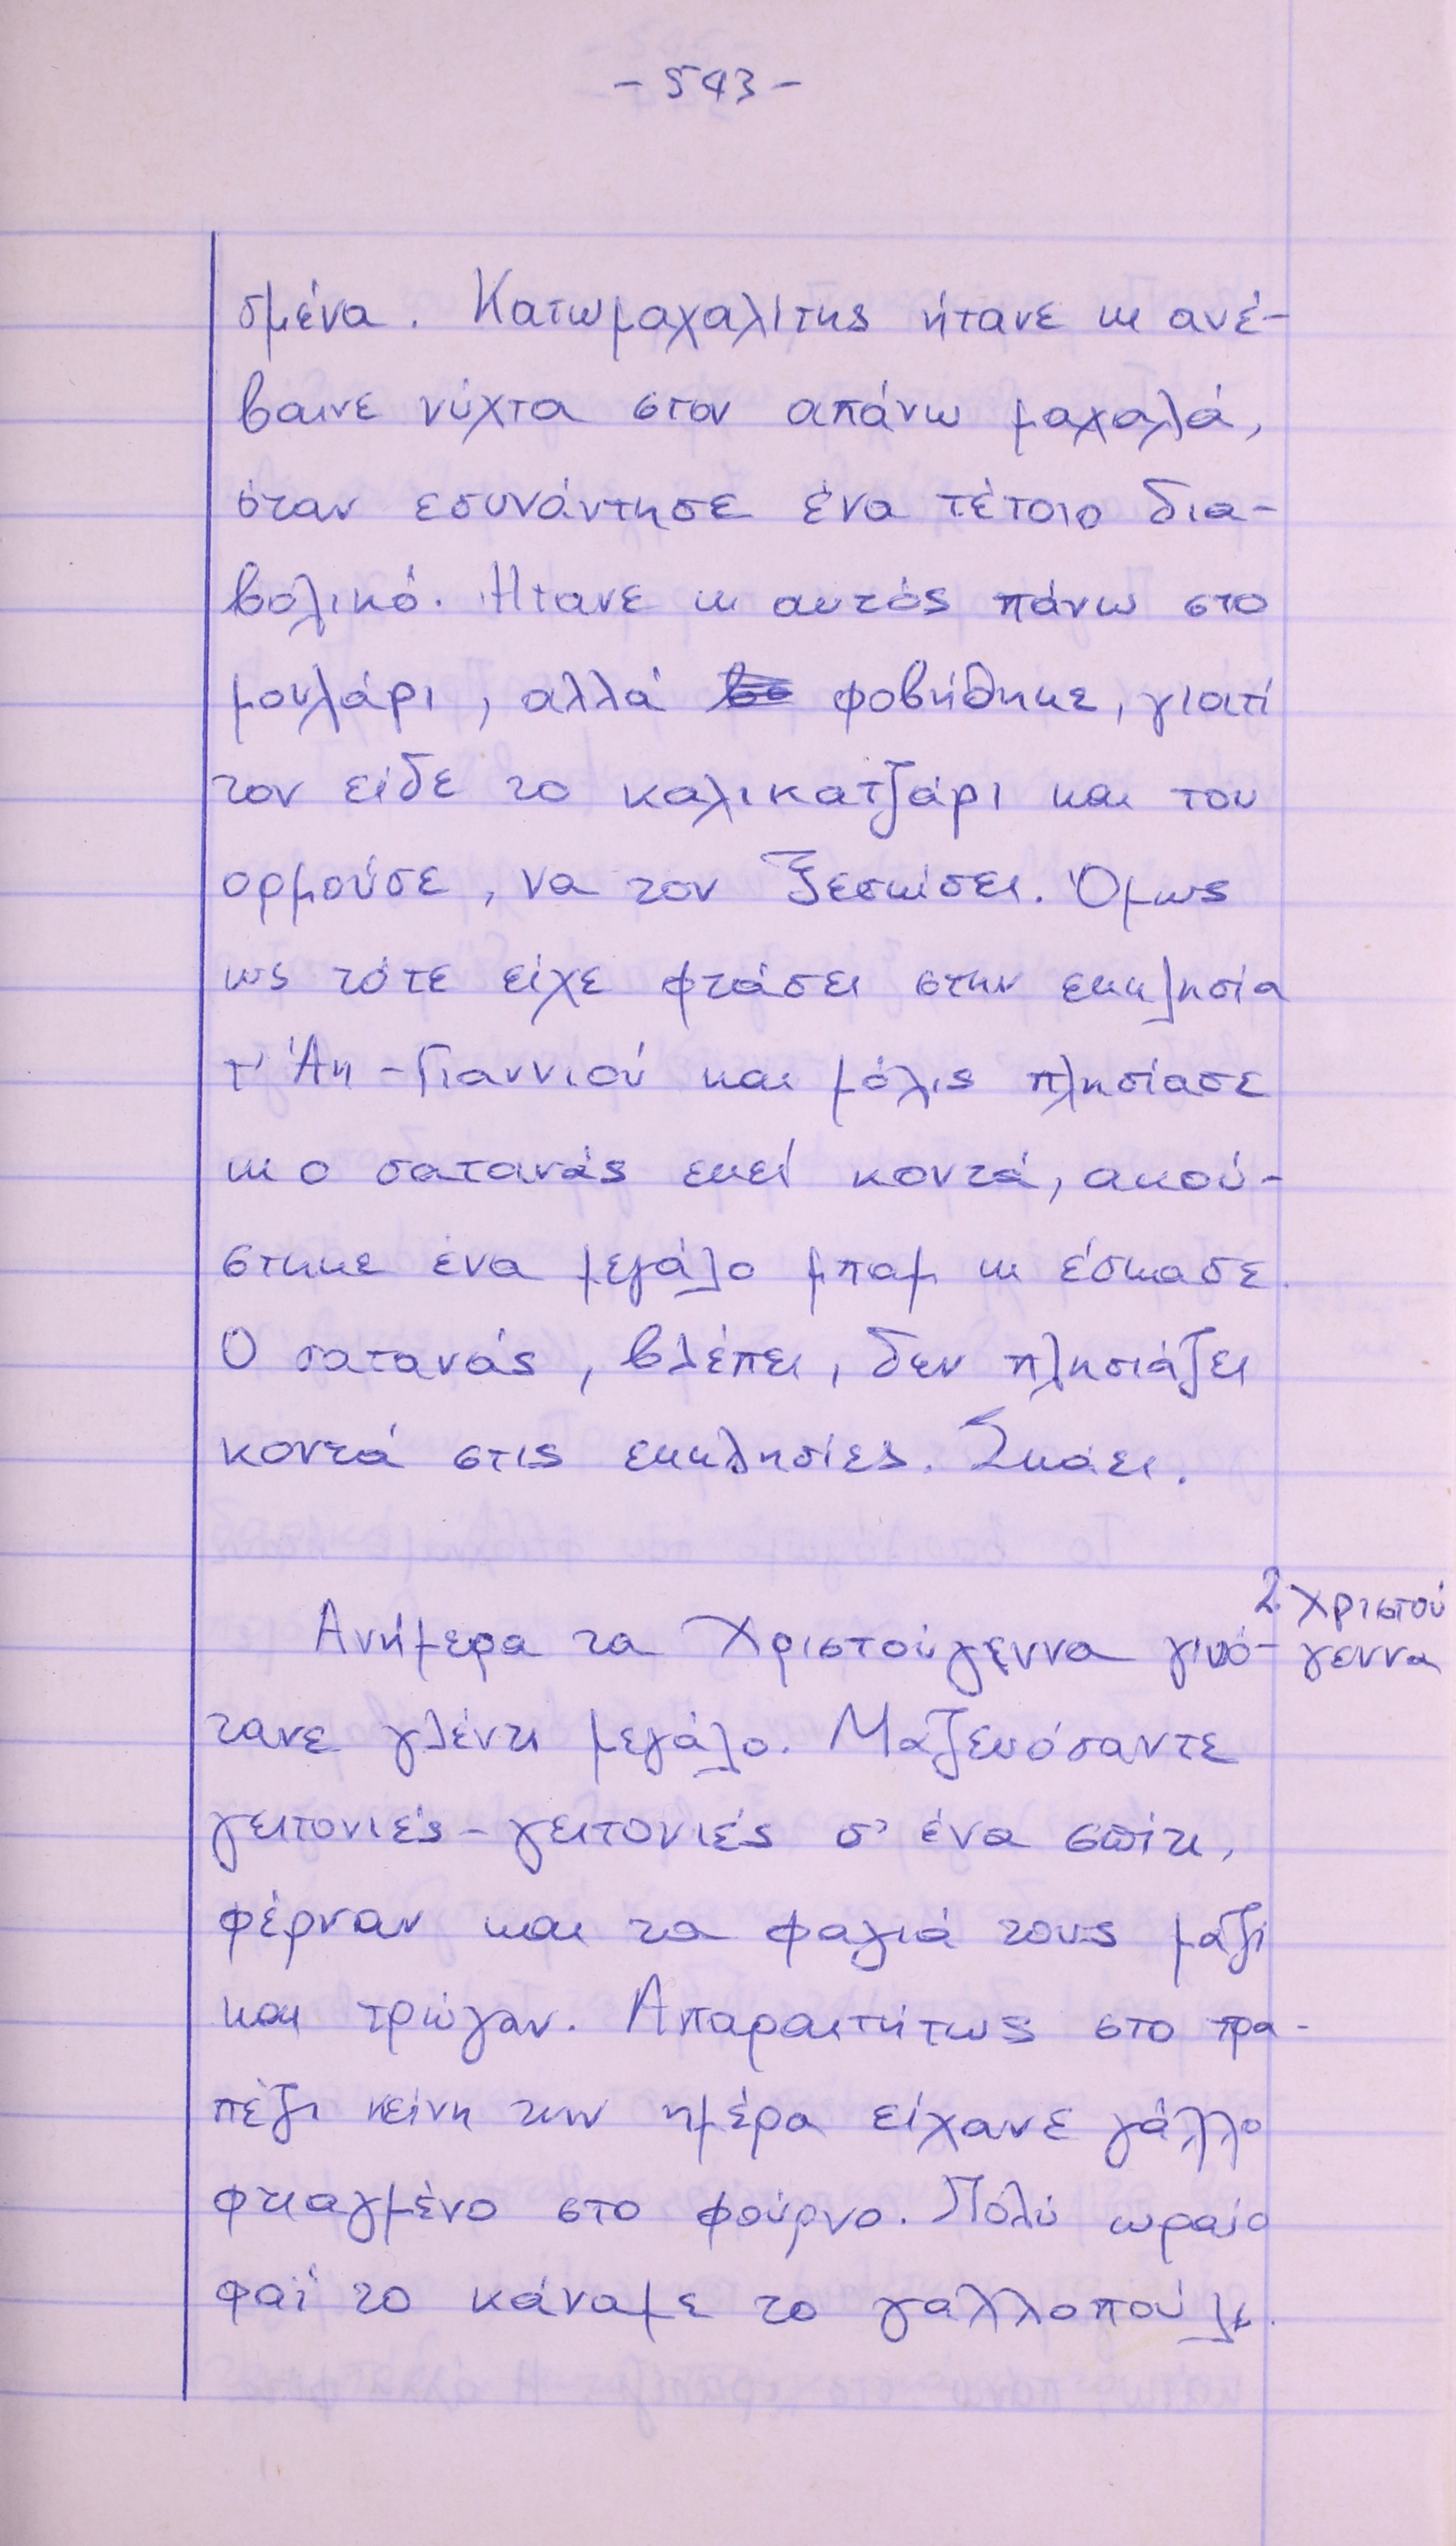 - 543 -
σμένα. Κατωμαχαλίτης ήτανε κι ανέ-
βαινε νύχτα στον απάνω μαχαλά,
όταν εσυνάντησε ένα τέτοιο δια-
βολικό. Ήτανε κι αυτός πάνω στο
μουλάρι, αλλά φοβήθηκε, γιατί
τον είδε το καλικατζάρι και του
ορμούσε, να τον ξεσκίσει. Όμως
ως τότε είχε φτάσει στην εκκλησία
τ' Άη-Γιαννιού και μόλις πλησίασε
κι ο σατανάς εκεί κοντά, ακού-
στηκε ένα μεγάλο μπαμ κι έσκασε.
Ο σατανάς, βλέπει, δεν πλησιάζει
κοντά στις εκκλησίες. Σκάει.
2 Χριστού
γεννα
Ανήμερα τα Χριστούγεννα γινό-
τανε γλέντι μεγάλο. Μαζευόσαντε
γειτονιές-γειτονιές σ' ένα σπίτι,
φέρναν και τα φαγιά τους μαζί
και τρώγαν. Απαραιτήτως στο τρα-
πέζι κείνη την ημέρα είχανε γάλλο
φτιαγμένο στο φούρνο. Πολύ ωραίο
φαΐ το κάναμε το γαλλοπούλι.